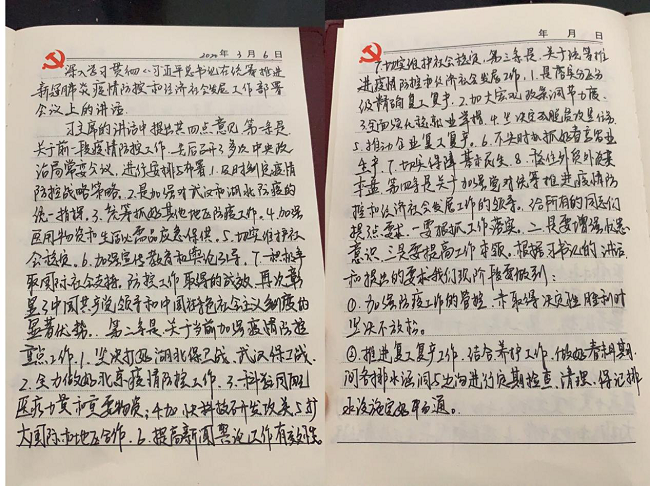 2020年3月6日
深入学习贯彻《习近平总书记在统筹推进
新冠肺炎疫情防控和经济社会发展工作部署
会议上的讲话
习主席的讲话中提出共四点意见 第一条是
关于前一段疫情防控工作。先后召开3多次中央政
治局常委会议,进行安排与部署1.及时制定疫情
防控战略策略。2.是加强对武汉市湖北防疫的
统一指挥。3.统筹抓好其他地区防疫工作。4.加强
医用物资和生活必需品应急保供。5.切实维护社
会稳定。6.加强宣传教育和舆论引导。7.积极争
取国际社会支持。防控工作取得的成效,再次彰
显了中国共产党领导和中国特色社会主义制度的
显著优势。第二条是。关于当前加强疫情防控
重点工作。1.坚决打好湖北保卫战、武汉保卫战。
2.全力做好北京疫情防控工作。3.科学调配
医疗力量和重要物资;4.加快科技研发攻关5.扩
大国际和地区合作。6.提高新闻舆论工作有效性。
年 月 日
7.切实维护社会稳定。第三条是。关于统筹推
进疫情防控和经济社会发展工作。1.是落实分区分
级精准复工复产。2.加大宏观政策调节力度。
3.全面强化稳就业举措。4.坚决完成脱贫攻坚任务
5.推动企业复工复产。6.不失时机抓好春季农业
生产。7.切实保障基本民生。8.稳住外贸外资
第四条是关于加强党对统筹推进疫情防
控和经济社会发展工作的领导。给所有的同志们
提3点要求。一要狠抓工作落实。二是要增强忧患
意识 三是要提高工作本领。根据习书记的讲话
和提出的要求我们现阶段要做到:
①.加强防疫工作的管控。未取得决定性胜利时
坚决不放松。
②.推进复工复产工作。结合养护工作。做好春季期
间各排水涵洞与边沟进行定期检查、清理。保证排
水设施完好畅通。